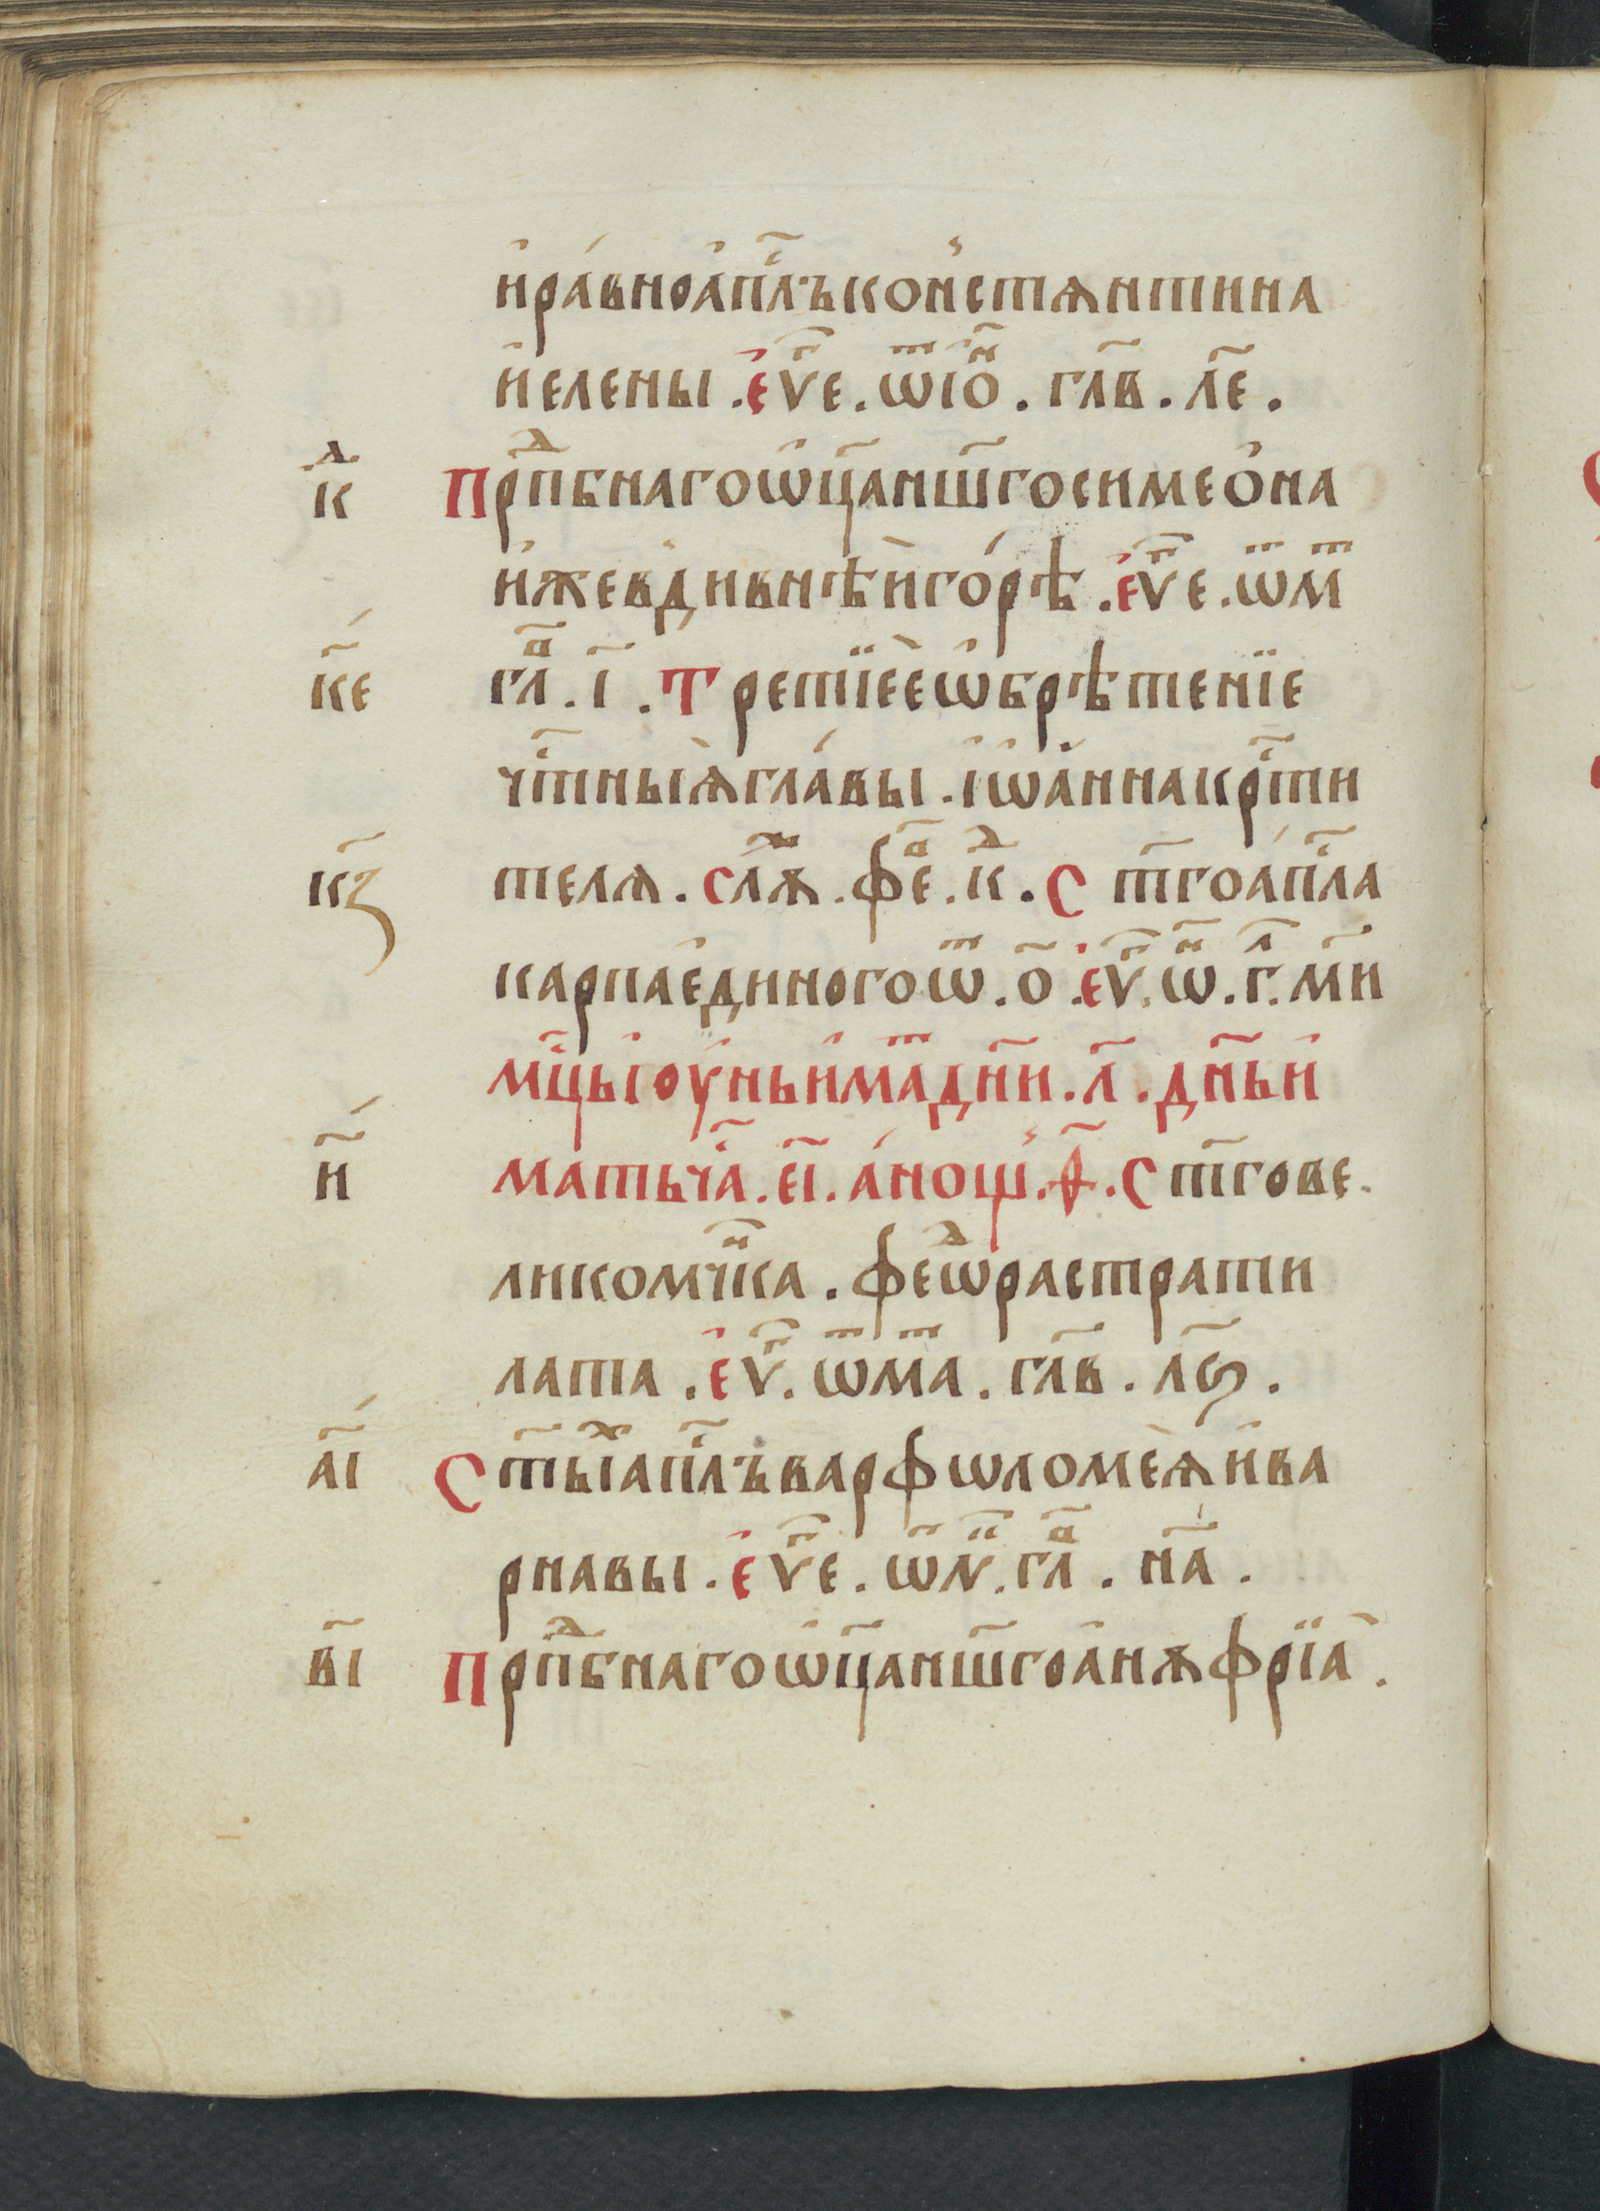 и҆ра́вноа҆пⷭ҇лъконьстѧнтина
и҆елены . є҆ѵⷢ҇е . ѿіѡⷩ҇ . глв҃ . л҃е .
к҃д Прпⷣбнагоѡ҆ц҃анш҃госимео҆на
и҆жевдивнѣи҆го́рѣ . є҆ѵⷢ҇е . ѿмⷮ
к҃е глⷡ҇ . і҃ . Третїеєѡ҆брѣтенїе
чтⷭ҇ныѧ҆гла́вы . і҆ѡа҆ннакрⷭ҇ти
к҃з телѧ . слꙋⷤ . феⷡ҇ . к҃д . Ст҃гоа҆пⷭ҇ла
карпае҆диногоѿ . о҃ . є҆ѵⷢ҇ . ѿ . г҃ . м҃и
мцⷭ҇ыоу҆ньи҆матⷮдн҃и . л҃ . дн҃ьи҆
и҃ матьчаⷭ҇ . е҃і . а҆нощь . ѳ҃ . Ст҃гове
ликомчⷩ҇ка . феѡⷣрастрати
лата . є҆ѵⷢ҇ . ѿмаⷮ . глв҃ . л҃ѕ .
а҃і Ст҃ыⷯапⷭ҇лъварфѡломеѧ҆и҆ва
рнавы . є҆ѵⷢ҇е . ѿлⷦ . глⷡ҇ . н҃а .
в҃і Прпⷣбнагоѡ҆ц҃анш҃гоа҆нꙋфрїа .